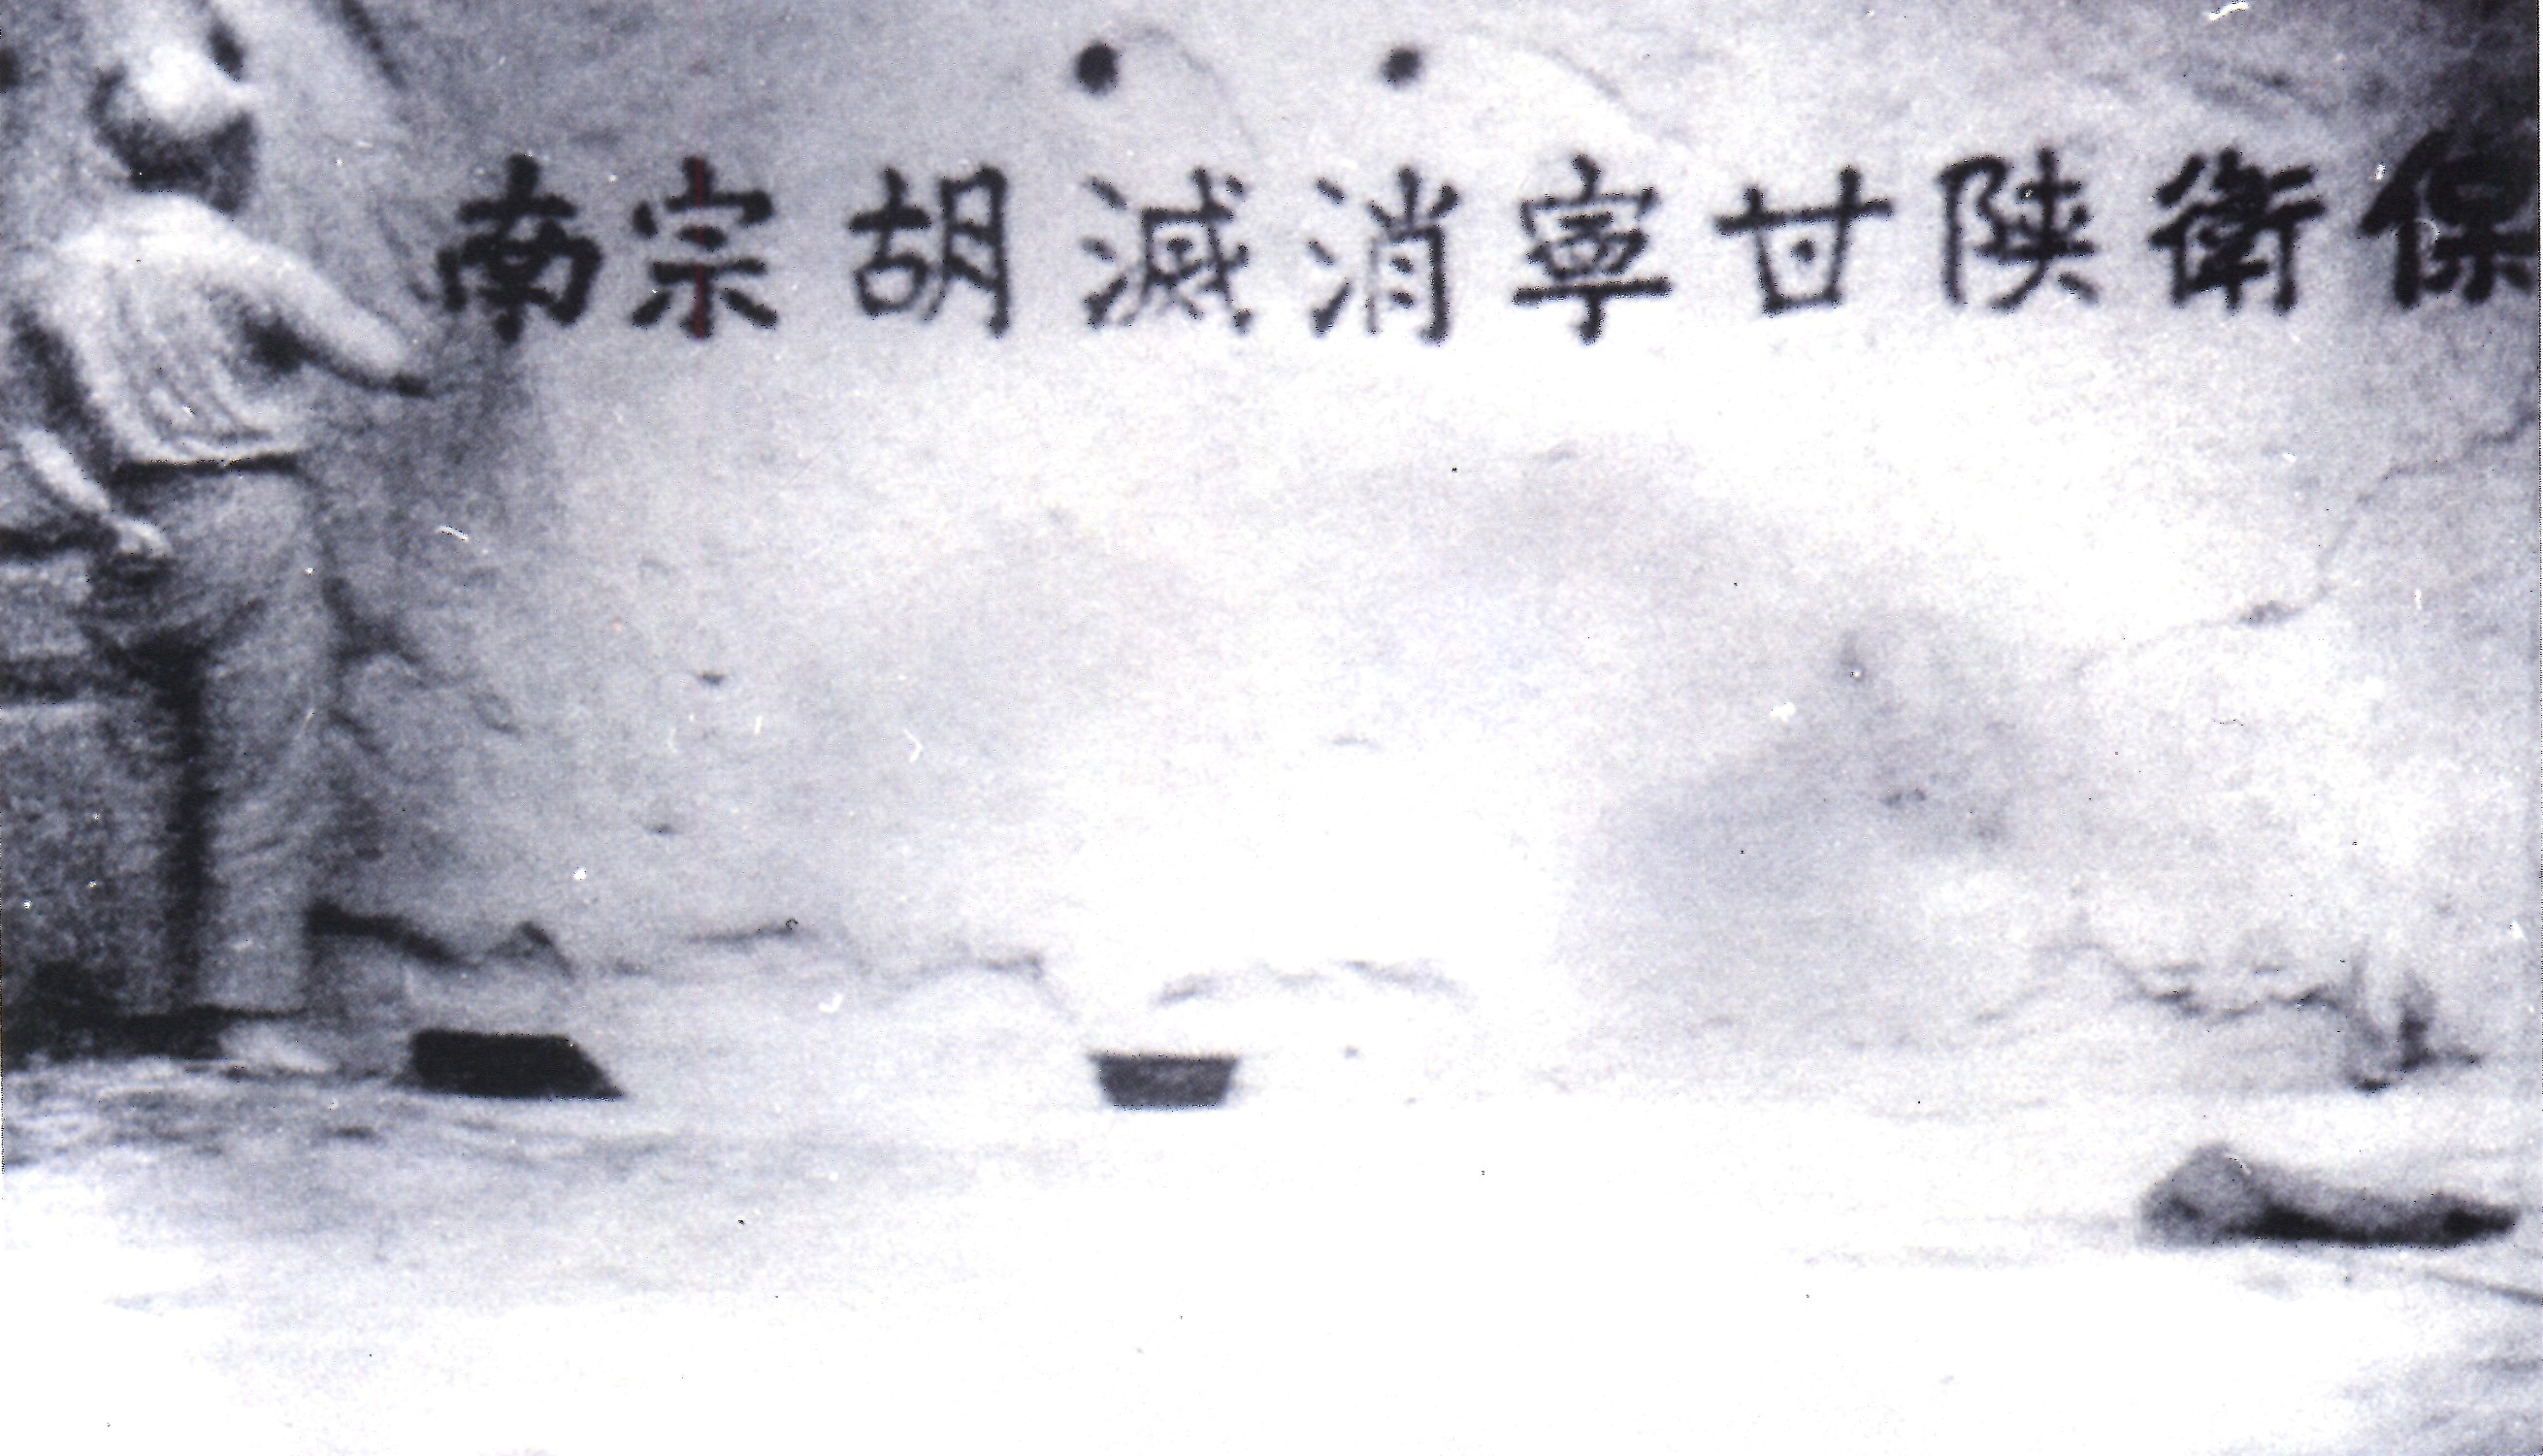 保衛陝甘寧消滅胡宗南